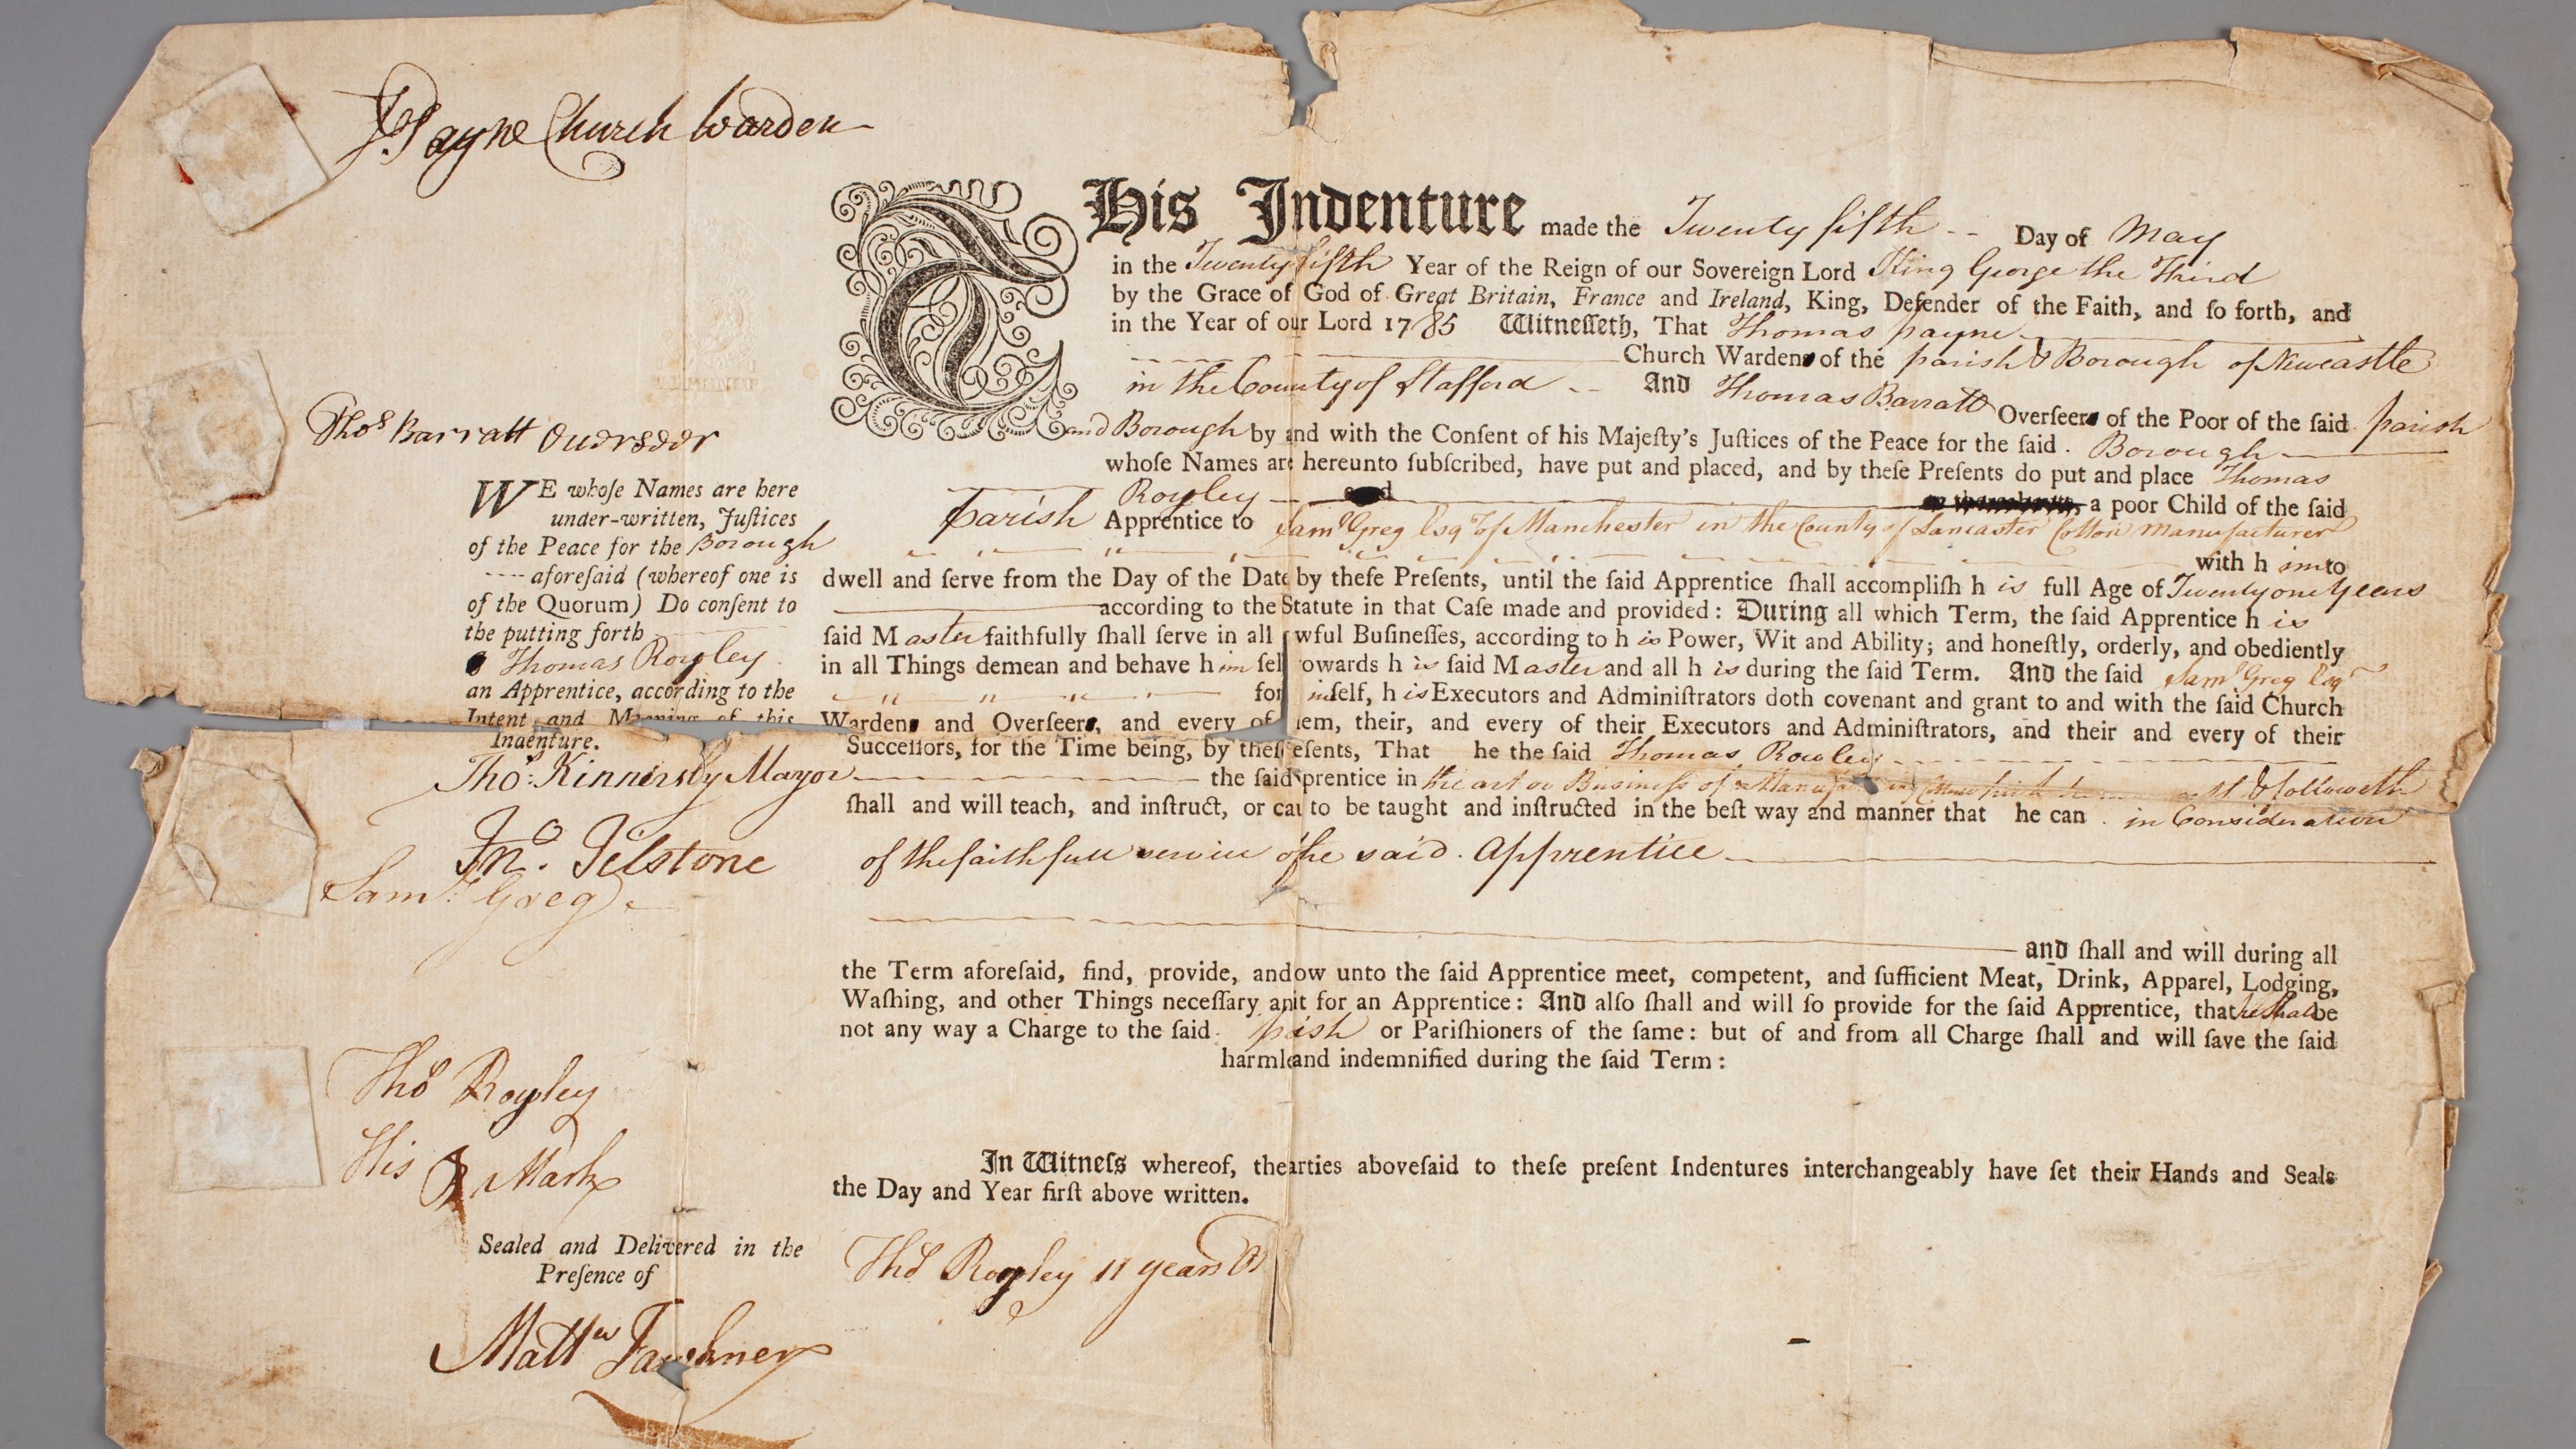 T. Payne Church Warden
THis Indenture made the Twenty fifth Day of May
in the Twenty fifth Year of the Reign of our Sovereign Lord King George the Third
by the Grace of God of Great Britain, France and Ireland, King, Defender of the Faith, and ſo forth, and
in the Year of our Lord 1785 Witneſſeth, That Thomas payne
Church Wardens of the parish & Borough of Newcastle
in the County of Stafford And Thomas Barratt
Overſeers of the Poor of the ſaid parish
and Borough by and with the Conſent of his Majeſty's Juſtices of the Peace for the ſaid Borough
whoſe Names are hereunto ſubſcribed, have put and placed, and by theſe Preſents do put and place Thomas
Rowley a poor Child of the ſaid
parish Apprentice to Samˡ Greg Esqʳ of Manchester in the County of Lancaster Cotton Manufacturer
with h im to
dwell and ſerve from the Day of the Date by theſe Preſents, until the ſaid Apprentice ſhall accompliſh h is full Age of Twenty one Years
according to the Statute in that Caſe made and provided: During all which Term, the ſaid Apprentice h is
ſaid M aster faithfully ſhall ſerve in all wful Buſineſſes, according to h is Power, Wit and Ability; and honeſtly, orderly, and obediently
in all Things demean and behave h im ſel owards h is ſaid M aster and all h is during the ſaid Term. And the ſaid Samˡ Greg Esqʳ
for imſelf, h is Executors and Adminiſtrators doth covenant and grant to and with the ſaid Church
Wardens and Overſeers, and every of em, their, and every of their Executors and Adminiſtrators, and their and every of their
Succeſſors, for the Time being, by theſ eſents, That he the ſaid Thomas Rowley
the ſaid prentice in the art or Business of a
shall and will teach, and inſtruct, or cau to be taught and inſtructed in the beſt way and manner that he can in Consideration
of the faithfull service of he said Apprentice
and ſhall and will during all
the Term aforeſaid, find, provide, and ow unto the ſaid Apprentice meet, competent, and ſufficient Meat, Drink, Apparel, Lodging,
Waſhing, and other Things neceſſary an it for an Apprentice: And alſo ſhall and will ſo provide for the ſaid Apprentice, that he shall be
not any way a Charge to the ſaid pish or Pariſhioners of the ſame: but of and from all Charge ſhall and will ſave the ſaid
harmle and indemnified during the ſaid Term:
In Witneſs whereof, the arties aboveſaid to theſe preſent Indentures interchangeably have ſet their Hands and Seals
the Day and Year firſt above written.
Thoˢ Rowley 11 years
Thoˢ Barratt Overseer
WE whoſe Names are here
under-written, Juſtices
of the Peace for the Borough
aforeſaid (whereof one is
of the Quorum) Do conſent to
the putting forth
Thomas Rowley
an Apprentice, according to the
Intent and Meaning of this
Indenture.
Thoˢ: Kinnersly Mayor
Jnº. Tilstone
Samˡ: Greg
Thoˢ Rowley
His Mark
Sealed and Delivered in the
Preſence of
Mattʷ Fawkner